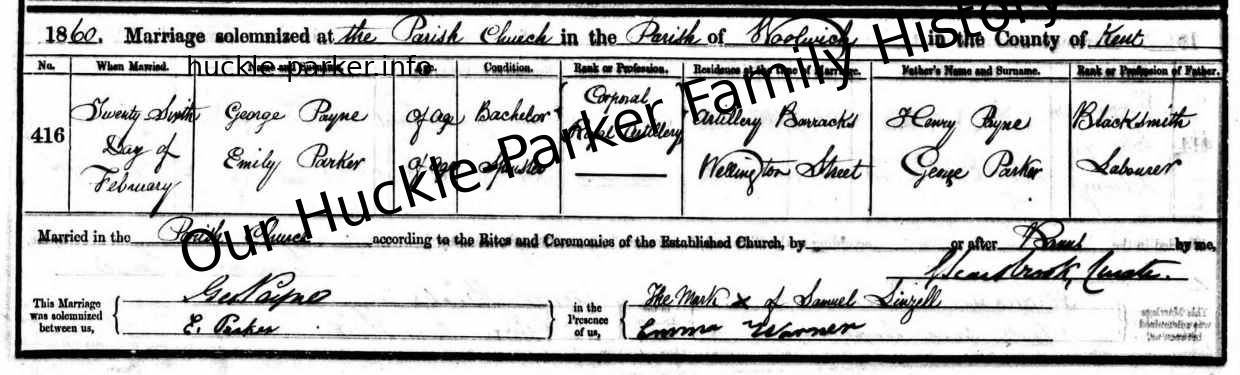 1860. Marriage solemnized at the Parish Church in the Parish of Woolwich in the County of Kent
No. When Married. Name and Surname. Age. Condition. Rank or Profession. Residence at the time of Marriage. Father's Name and Surname. Rank or Profession of Father.
huckle-parker.info
416
Twenty Sixth
Day of
February
George Payne
Emily Parker
Of age
Of age
Bachelor
Spinster
Corporal
Royal Artillery
Artillery Barracks
Wellington Street
Henry Payne
George Parker
Blacksmith
Labourer
Our Huckle Parker Family History
Married in the Parish Church according to the Rites and Ceremonies of the Established Church, by or after Banns by me,
Curate.
This Marriage
was solemnized
between us,
Geo Payne
E. Parker
in the
Presence
of us,
The Mark x of Samuel Linzell
Emma Warner